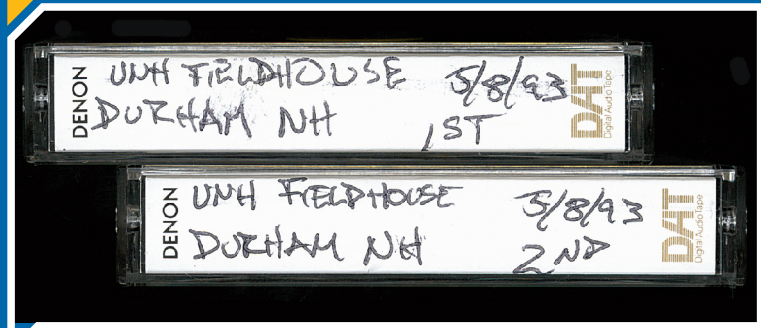 DENON
UNH FIELDHOUSE 5/8/93
DURHAM NH 1ST
DAT
Digital Audio Tape
DENON
UNH FIELDHOUSE 5/8/93
DURHAM NH 2ND
DAT
Digital Audio Tape